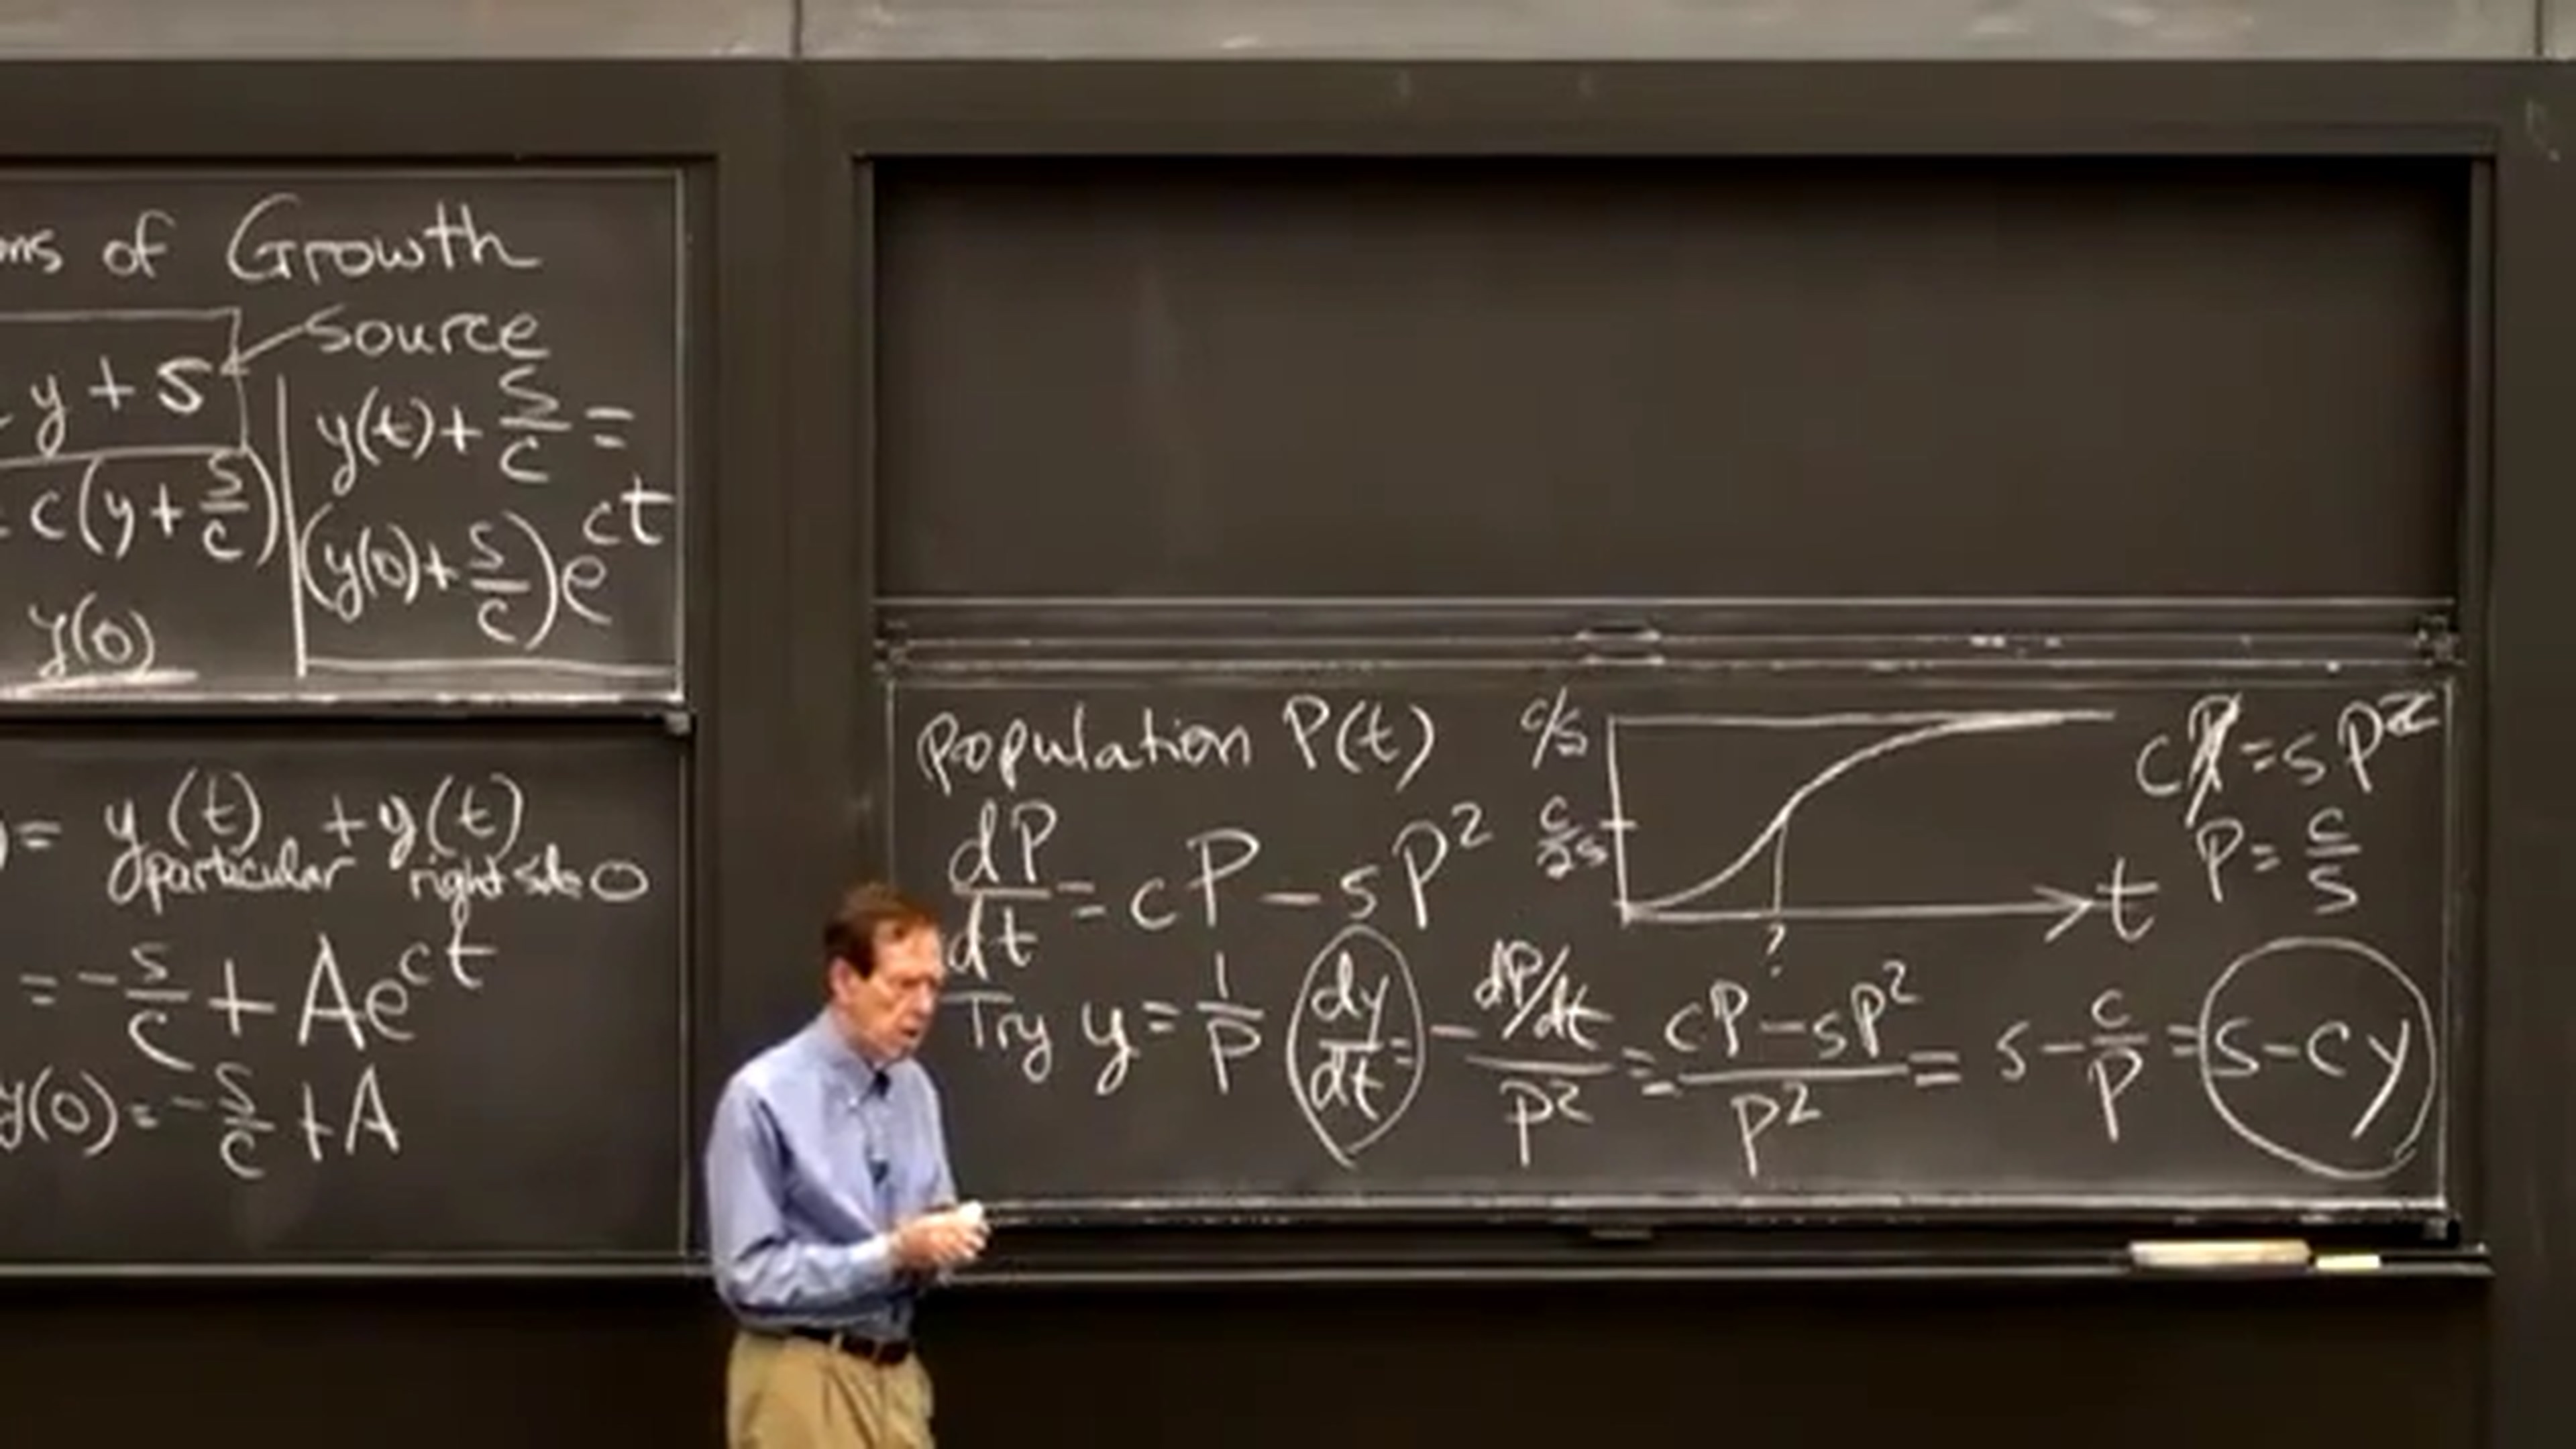 ns of Growth
source
y + s
c(y + s/c)
y(0)
y(t) + s/c =
(y(0) + s/c) e^ct
) = y(t) particular + y(t) right side 0
= - s/c + Ae^ct
y(0) = - s/c + A
Population P(t)
dP/dt = cP - sP²
c/s
c/2s
t
?
cP = sP²
P = c/s
Try y = 1/P dy/dt = - dP/dt / P² = cP - sP² / P² = s - c/P = s - cy